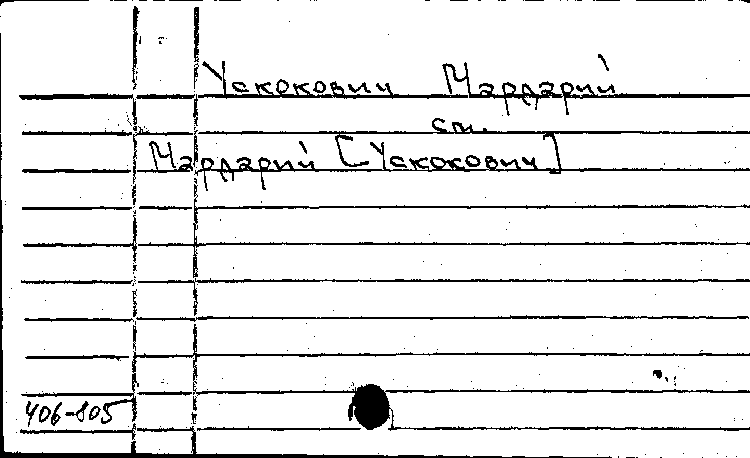 Ускокович Мардарий
см.
Мардарий [Ускокович]
406-805